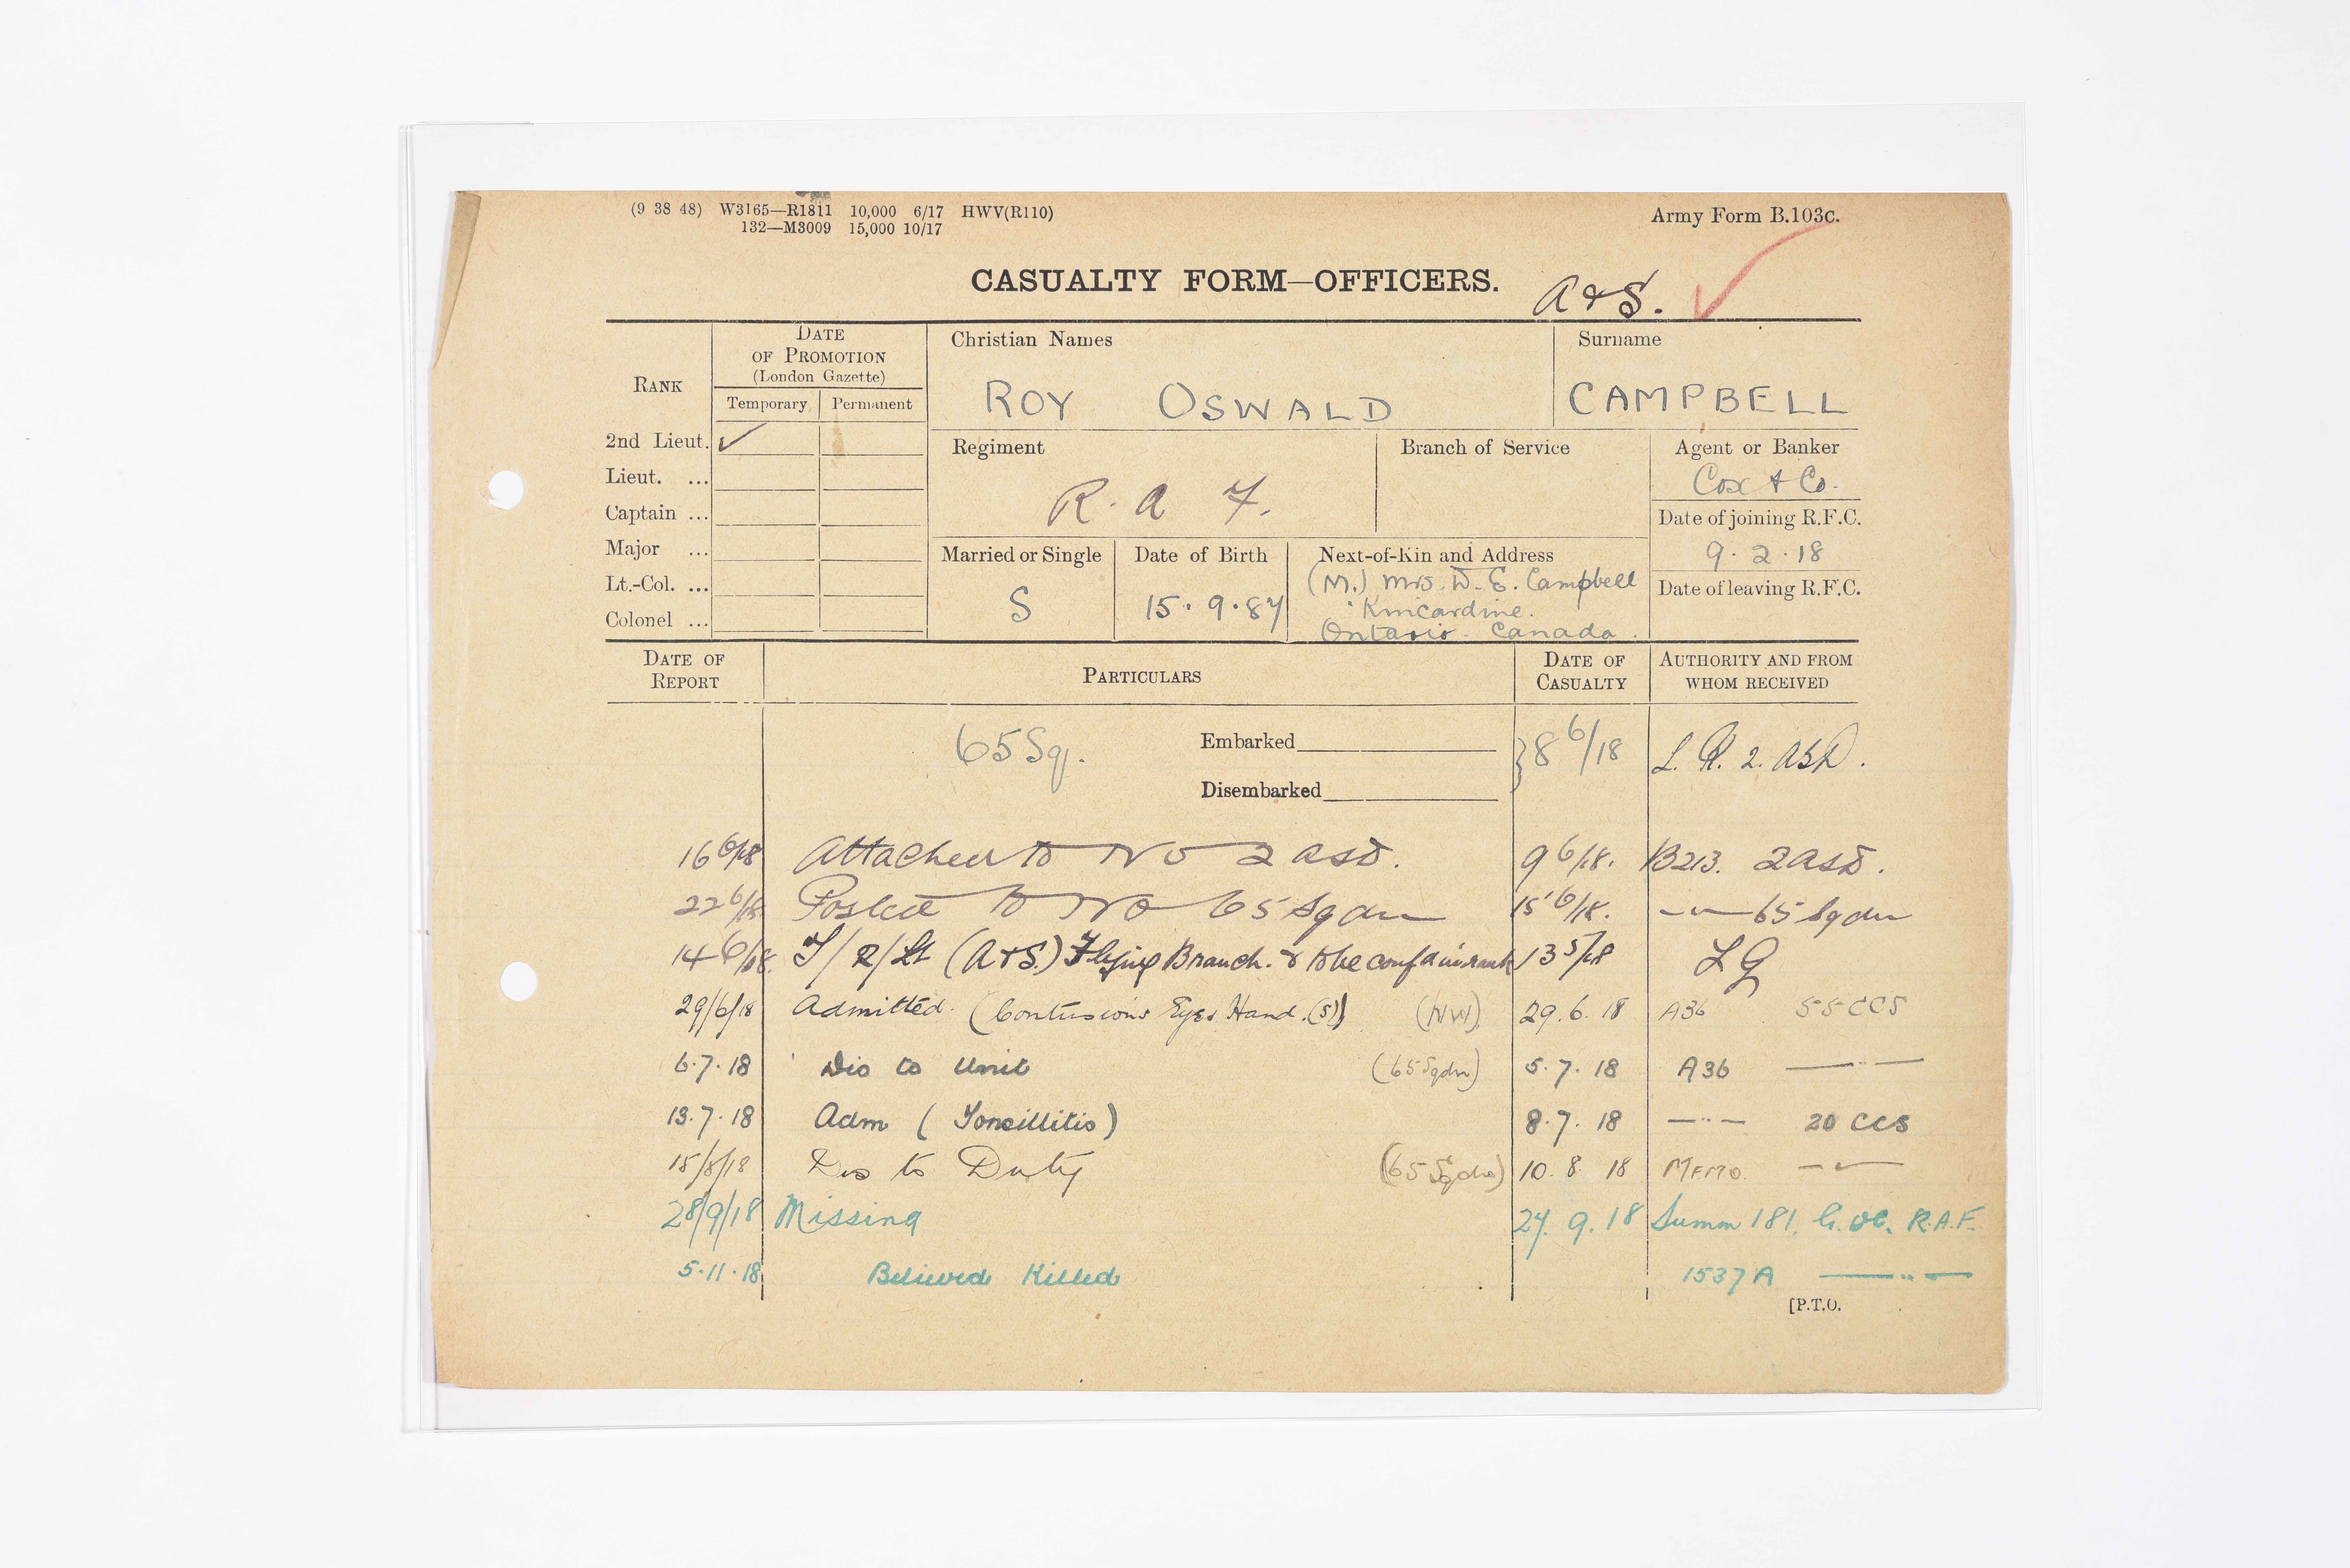 (9 38 48) W3165—R1811 10,000 6/17 HWV(R110)
132—M3009 15,000 10/17
Army Form B.103c.
CASUALTY FORM—OFFICERS.
A & S.
RANK
DATE OF PROMOTION (London Gazette)
Temporary Permanent
Christian Names
Surname
ROY OSWALD
CAMPBELL
2nd Lieut. ✓
Lieut. ...
Captain ...
Major ...
Lt.-Col. ...
Colonel ...
Regiment
Branch of Service
Agent or Banker
R. A F.
Cox & Co.
Date of joining R.F.C.
9. 2. 18
Date of leaving R.F.C.
Married or Single
Date of Birth
Next-of-Kin and Address
S
15. 9. 87
(M.) Mrs. W. E. Campbell
Kincardine.
Ontario. Canada.
DATE OF REPORT
PARTICULARS
DATE OF CASUALTY
AUTHORITY AND FROM WHOM RECEIVED
65 Sq.
Embarked
Disembarked
} 8 6/18
L. R. 2. ASD.
16 6/18 Attached to No 2 ASD. 9 6/18. B213. 2 ASD.
22 6/18 Posted to No 65 Sqdn 15 6/18. —"— 65 Sqdn
14 6/18. T/2/Lt (A & S.) Flying Branch. & to be conf d in rank 13 5/18 LG
29/6/18 Admitted. (Contusions Eyes. Hand. (S)) (NW) 29. 6. 18 A36 55 CCS
6. 7. 18 Dis to Unit (65 Sqdn) 5. 7. 18 A36 —"—
13. 7. 18 Adm (Tonsillitis) 8. 7. 18 —"— 20 CCS
15/8/18 Dis to Duty (65 Sqdn) 10. 8. 18 MEMO. —"—
28/9/18 Missing 27. 9. 18 Summ 181. G. OC. R.A.F.
5. 11. 18 Believed Killed 1537A —"—
[P.T.O.